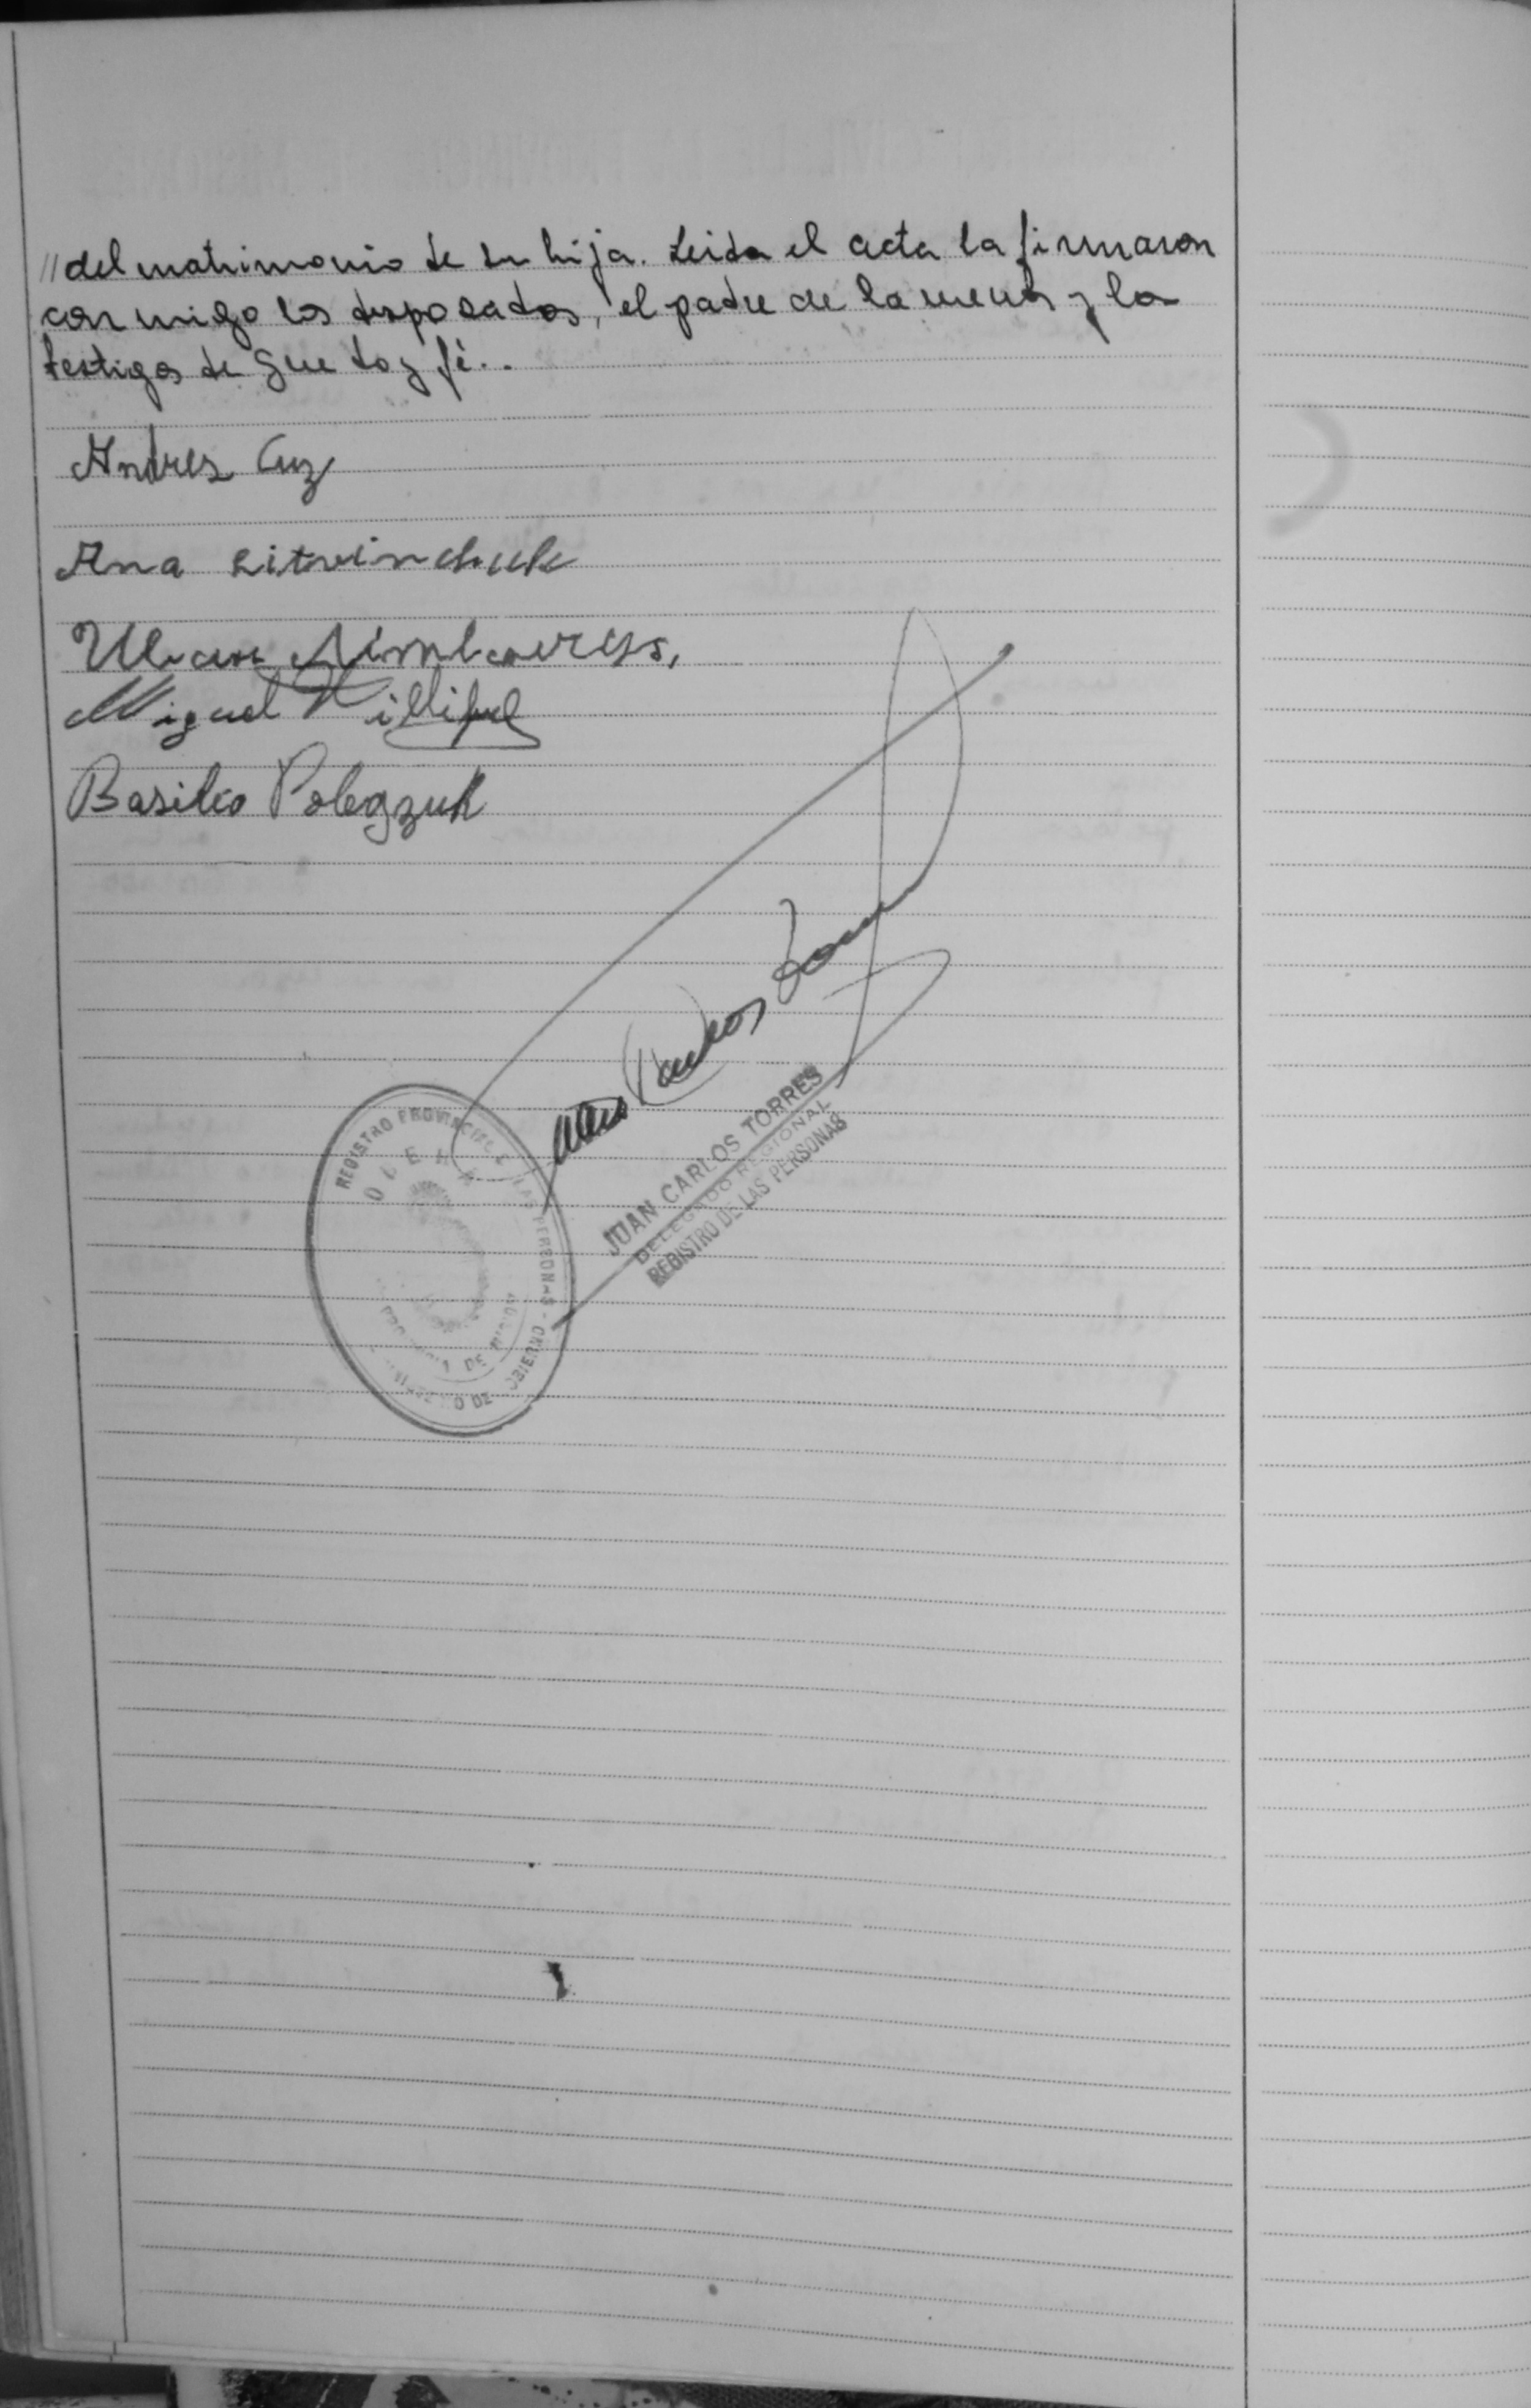 //del matrimonio de su hija. Leida el acta la firmaron
conmigo los desposados, el padre de la menor y los
testigos de que doy fé..
Andres Cuz
Ana Litvinchuk
Miguel
Basilio Polegzuk
Juan Carlos Torres
JUAN CARLOS TORRES
DELEGADO REGIONAL
REGISTRO DE LAS PERSONAS
REGISTRO PROVINCIAL DE LAS PERSONAS - MINISTERIO DE GOBIERNO
PROVINCIA DE MISIONES